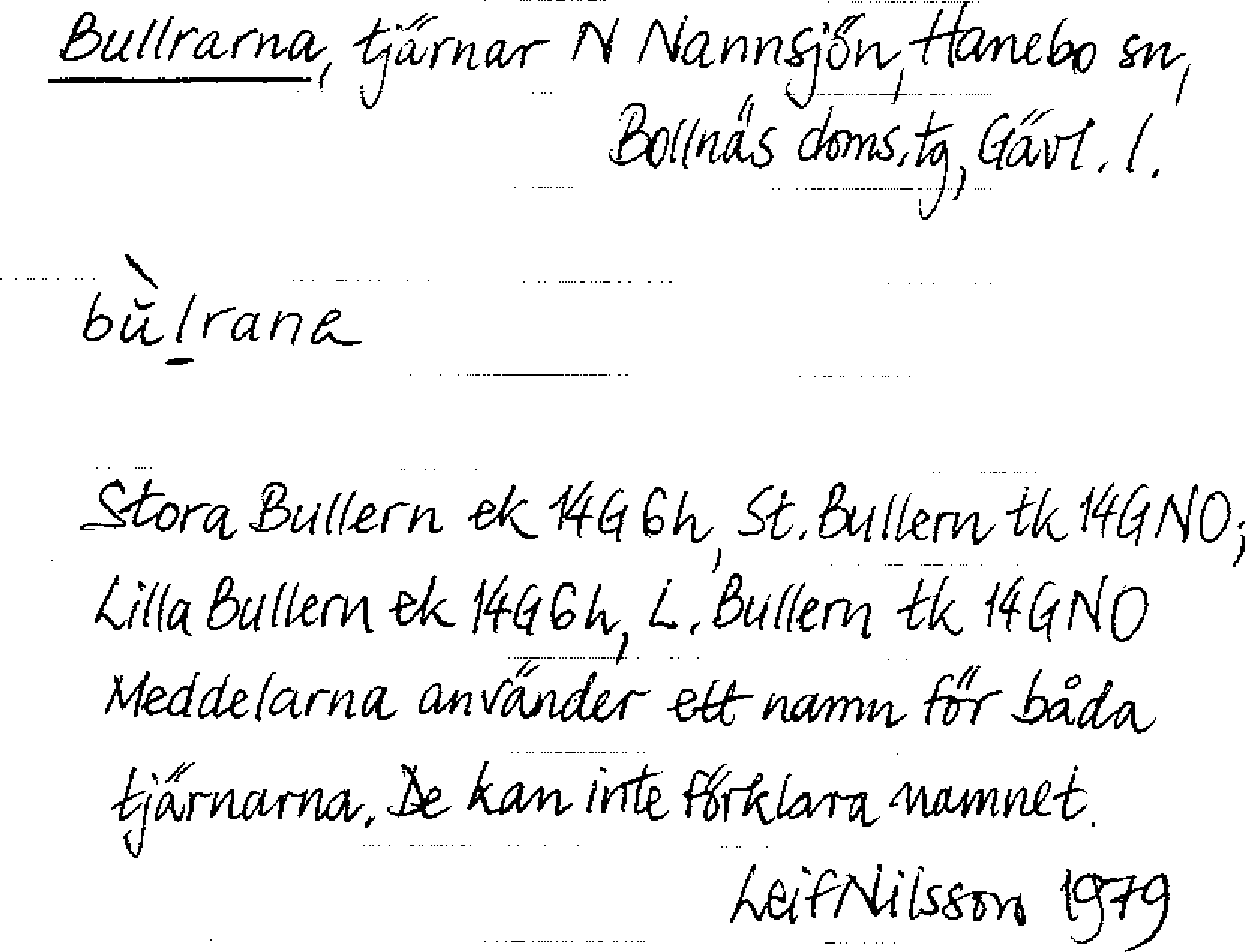 Bullrarna, tjärnar N Nannsjön, Hanebo sn,
Bollnäs doms.tg, Gävl. l.
bŭ̀l̠rana
Stora Bullern ek 14G 6h, St. Bullern tk 14G NO;
Lilla Bullern ek 14G 6h, L. Bullern tk 14G NO
Meddelarna använder ett namn för båda
tjärnarna. De kan inte förklara namnet.
Leif Nilsson 1979